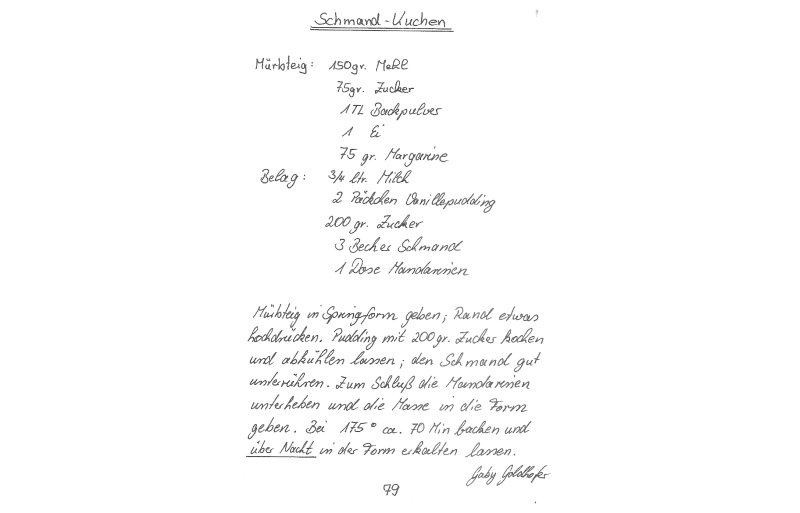 Schmand-Kuchen
Mürbteig: 150gr. Mehl
75gr. Zucker
1TL Backpulver
1 Ei
75 gr. Margarine
Belag: 3/4 ltr. Milch
2 Päckchen Vanillepudding
200 gr. Zucker
3 Becher Schmand
1 Dose Mandarinen
Mürbteig in Springform geben; Rand etwas
hochdrücken. Pudding mit 200gr. Zucker kochen
und abkühlen lassen; den Schmand gut
unterrühren. Zum Schluß die Mandarinen
unterheben und die Masse in die Form
geben. Bei 175° ca. 70 Min backen und
über Nacht in der Form erkalten lassen.
Gaby Goldhofer
79